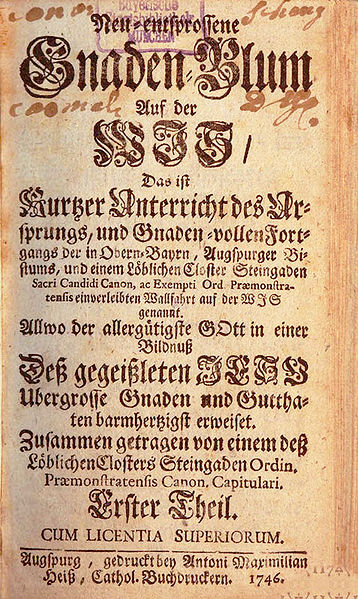 Neu-entsprossene
Bayerische
Staatsbibliothek
MÜNCHEN
Gnaden-Blum
Auf der
WJS/
Das ist
Kurtzer Unterricht des Ur-
sprungs, und Gnaden-vollen Fort-
gangs der in Obern-Bayrn, Augspurger Bi-
stums, und einem Löblichen Closter Steingaden
Sacri Candidi Canon, ac Exempti Ord Præmonstra-
tensis einverleibten Wallfahrt auf der WJS
genannt.
Allwo der allergütigste GOtt in einer
Bildnuß
Deß gegeißleten JESU
Ubergrosse Gnaden und Guttha-
ten barmhertzigst erweiset.
Zusammen getragen von einem deß
Löblichen Closters Steingaden Ordin.
Præmonstratensis Canon. Capitulari.
Erster Theil.
CUM LICENTIA SUPERIORUM.
Augspurg, gedruckt bey Antoni Maximilian
Heiß, Cathol. Buchdruckern. 1746.